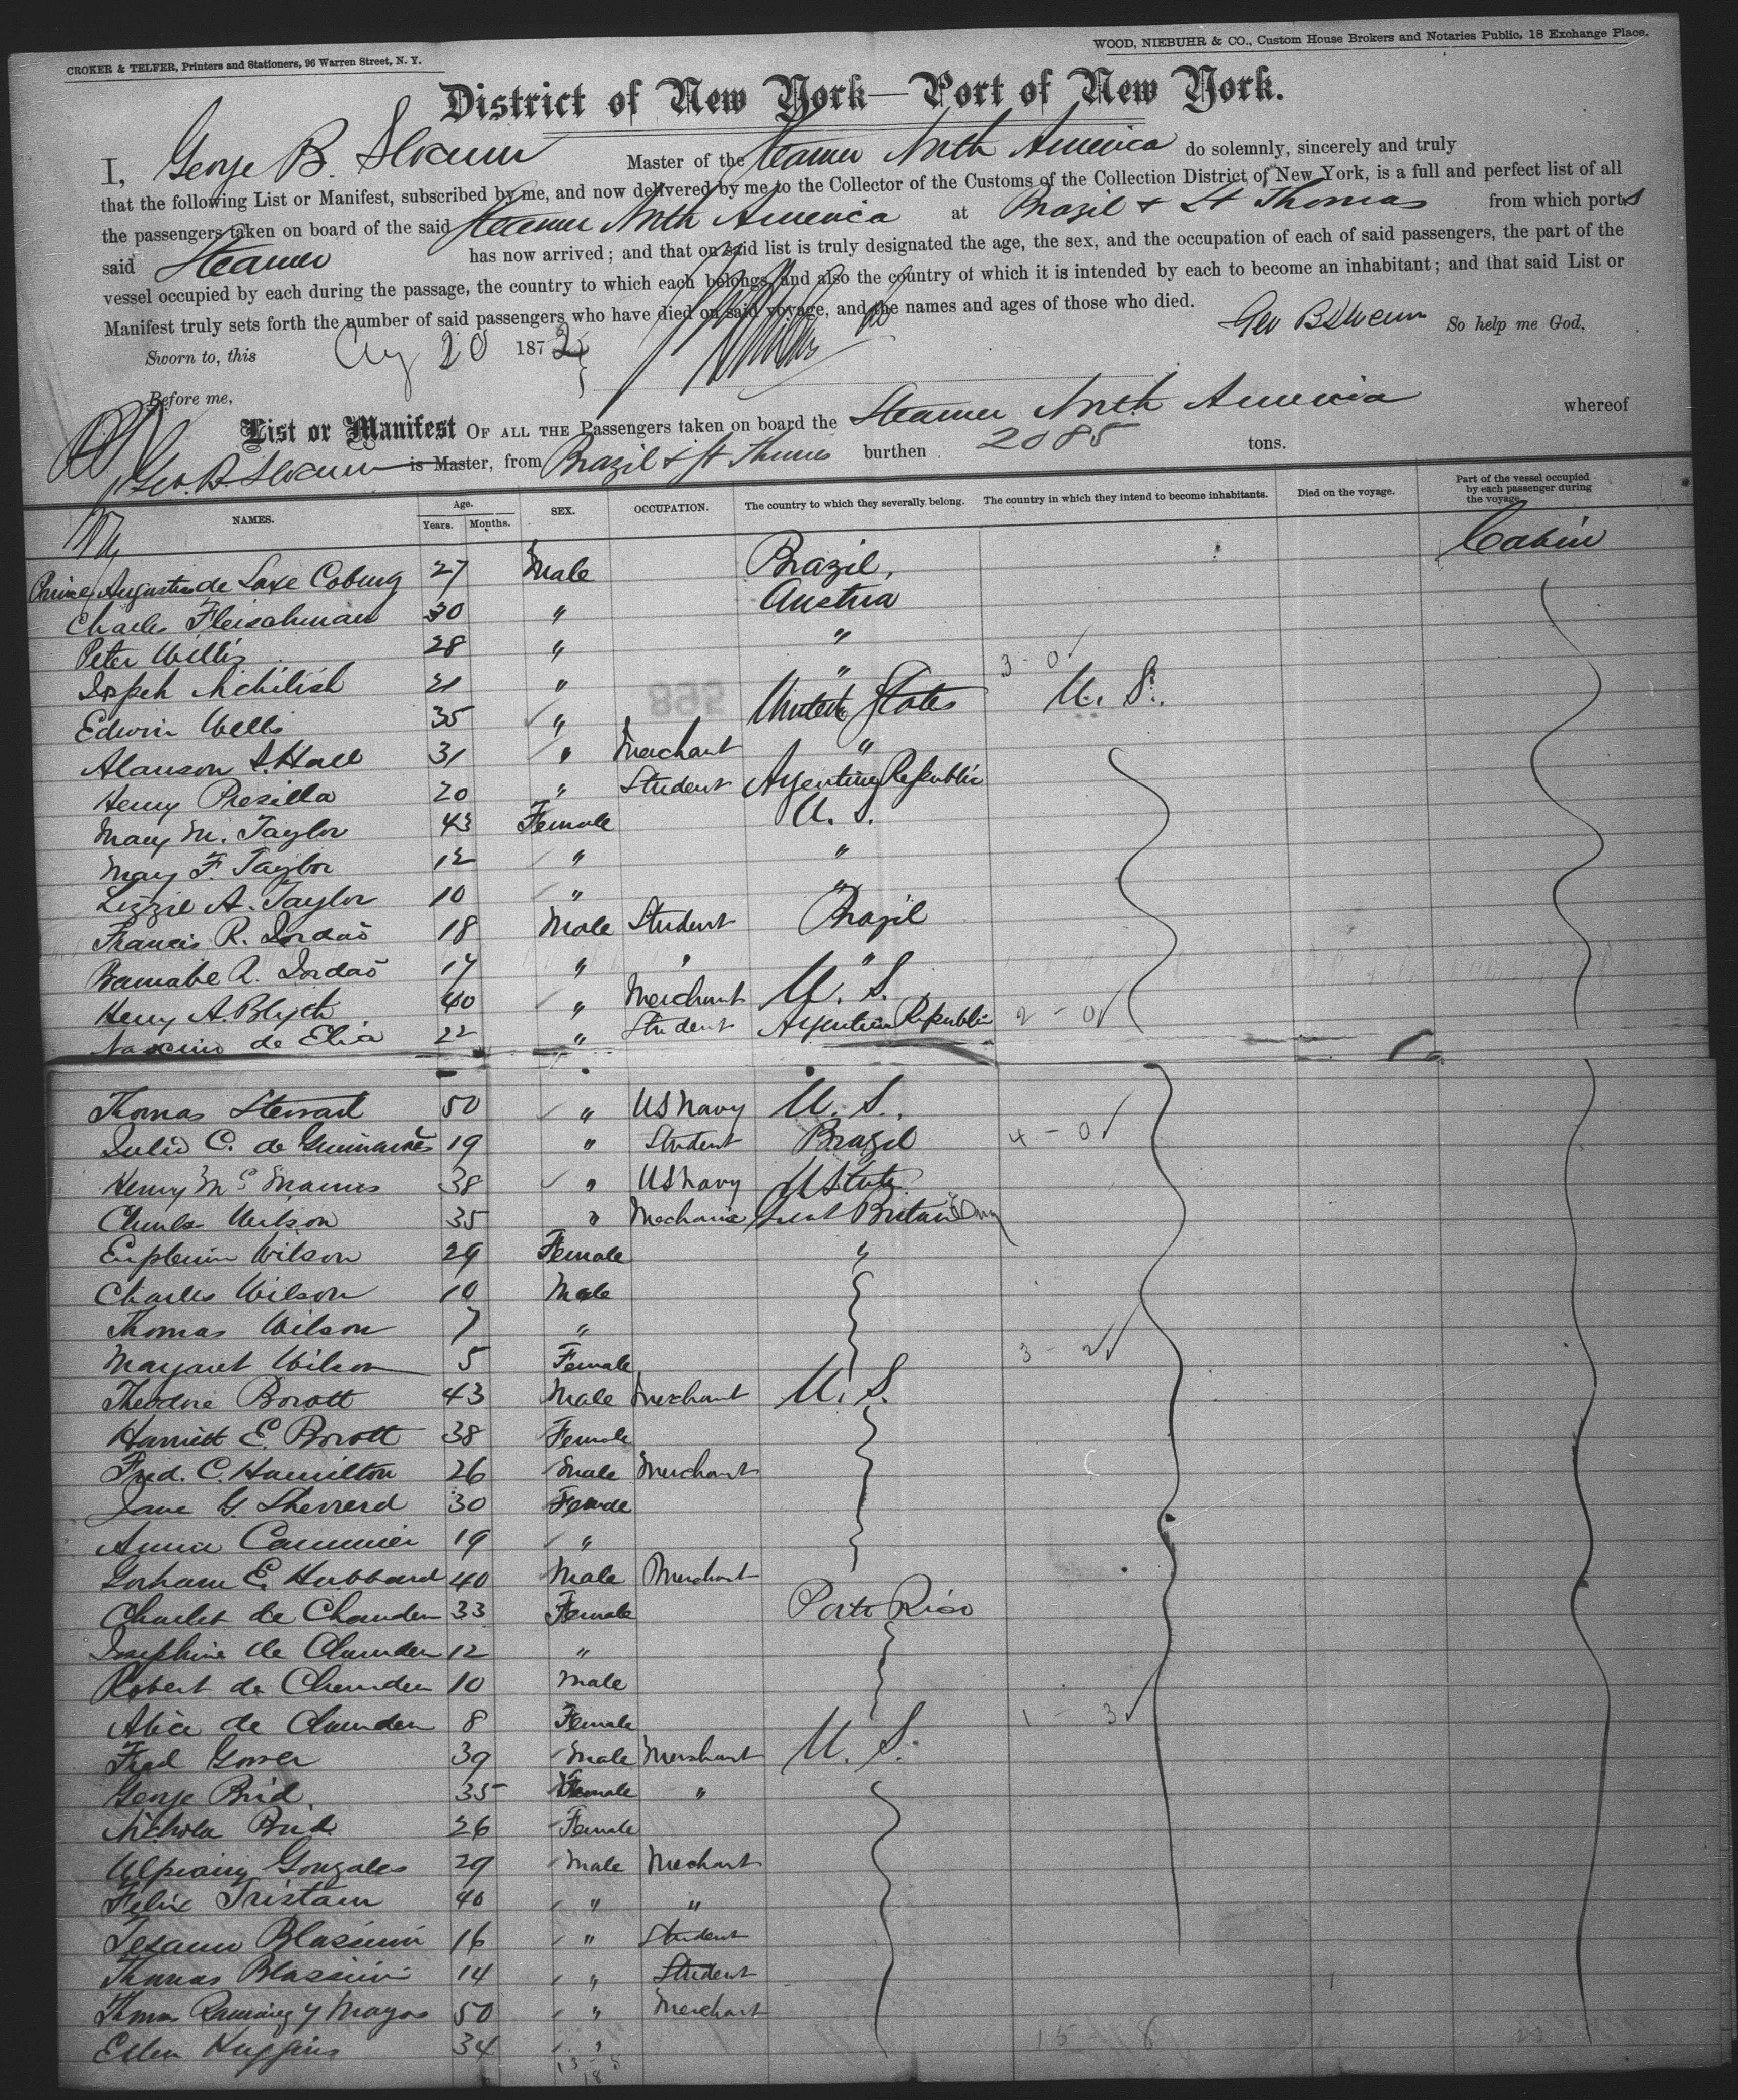 CROKER & TELFER, Printers and Stationers, 96 Warren Street, N. Y.
WOOD, NIEBUHR & CO., Custom House Brokers and Notaries Public, 18 Exchange Place.
District of New York—Port of New York.
I, George B. Slocum Master of the Steamer North America do solemnly, sincerely and truly
that the following List or Manifest, subscribed by me, and now delivered by me to the Collector of the Customs of the Collection District of New York, is a full and perfect list of all
the passengers taken on board of the said Steamer North America at Brazil & St Thomas from which ports
said Steamer has now arrived; and that on said list is truly designated the age, the sex, and the occupation of each of said passengers, the part of the
vessel occupied by each during the passage, the country to which each belongs, and also the country of which it is intended by each to become an inhabitant; and that said List or
Manifest truly sets forth the number of said passengers who have died on said voyage, and the names and ages of those who died.
Geo B Slocum So help me God,
Sworn to, this Aug 20 1872
Before me,
List or Manifest OF ALL THE Passengers taken on board the Steamer North America whereof
Geo. B. Slocum is Master, from Brazil & St Thomas burthen 2085 tons.
NAMES. Age. Years. Months. SEX. OCCUPATION. The country to which they severally belong. The country in which they intend to become inhabitants. Died on the voyage. Part of the vessel occupied by each passenger during the voyage.
Prince Augustus de Saxe Coburg 27 Male Brazil, Cabin
Charles Fleischman 30 " Austria
Peter Willis 28 " "
Joseph 21 " " 3 - 0
Edwin Wells 35 " United States U. S.
Alanson S. Hall 31 " Merchant "
Henry Presilla 20 " Student Argentine Republic
Mary M. Taylor 43 Female U. S.
Mary F. Taylor 12 " "
Lizzie A. Taylor 10 " "
Francis R. Jordaõ 18 Male Student Brazil
Barnabe R. Jordaõ 17 " " "
Henry A. Blyth 40 " Merchant U. S.
de Elia 22 " Student Argentine Republic 2 - 0
Thomas Stewart 50 " US Navy U. S.
Julio C. de Guimarães 19 " Student Brazil 4 - 0
Henry Mc Manus 38 " US Navy U State
Charles Wilson 35 " Mechanic Great Britain
Wilson 29 Female "
Charles Wilson 10 Male
Thomas Wilson 7 "
Margaret Wilson 5 Female 3 - 2
Theodore Borott 43 Male Merchant U. S.
Harriett E. Borott 38 Female
Fred. C. Hamilton 26 Male Merchant
Jane G. Sherrerd 30 Female
Annie 19 "
Gorham E. Hubbard 40 Male Merchant
de Chanden 33 Female Porto Rico
Josephine de Chanden 12 "
Robert de Chanden 10 Male
Alice de Chanden 8 Female 1 - 3
Fred 39 Male Merchant U. S.
George Brid. 35 Female "
Nichola Brid 26 Female
Gonzales 29 Male Merchant
Felix Tristain 40 " "
Blasini 16 " Student
Thomas Blasini 14 " Student
Thomas Ramirez y Mayor 50 " Merchant
Ellen Huggins 34 " 15 - 8